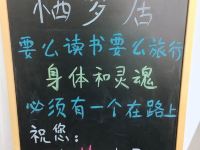 栖梦居
要么读书要么旅行
身体和灵魂
必须有一个在路上
祝您：